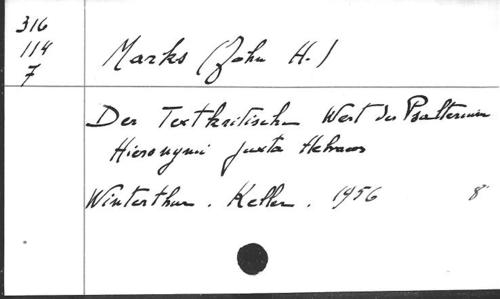 316
114
7
Marks (John H.)
Der Textkritische Wert des Psalterium
Hieronymi juxta Hebraeos
Winterthur. Keller. 1956 8°